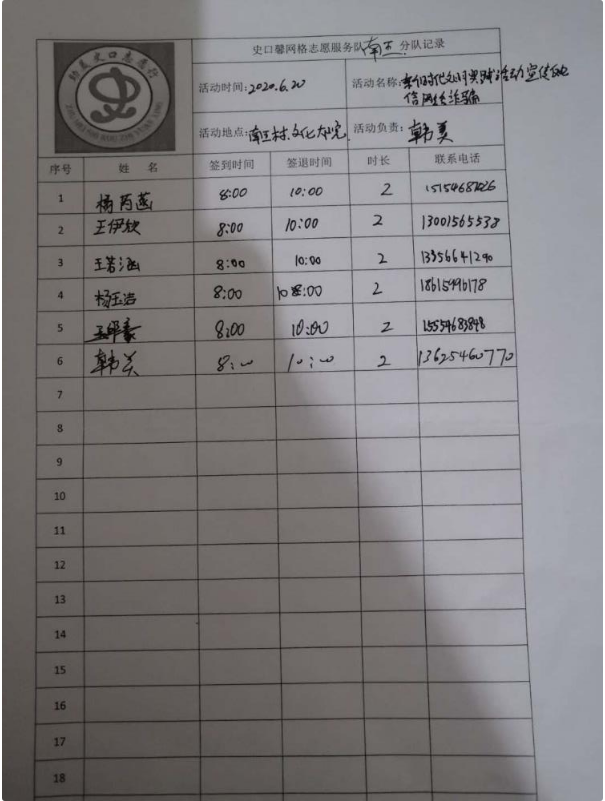 史口馨网格志愿服务队南王分队记录
活动时间:2020.6.20
活动名称:新时代文明实践活动宣传电信网络诈骗
活动地点:南王村文化大院
活动负责:韩美
序号 姓 名 签到时间 签退时间 时长 联系电话
1 杨芮菡 8:00 10:00 2
2 王伊欣 8:00 10:00 2 13001565538
3 王若涵 8:00 10:00 2 13356641290
4 杨玉浩 8:00 10:00 2 18615996178
5 8:00 10:00 2
6 韩美 8:00 10:00 2 13625460770
7
8
9
10
11
12
13
14
15
16
17
18